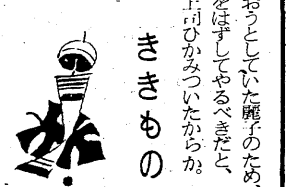 おうとしていた麗子のため、
をはずしてやるべきだと、
上司ひかみついたからか。
ききもの